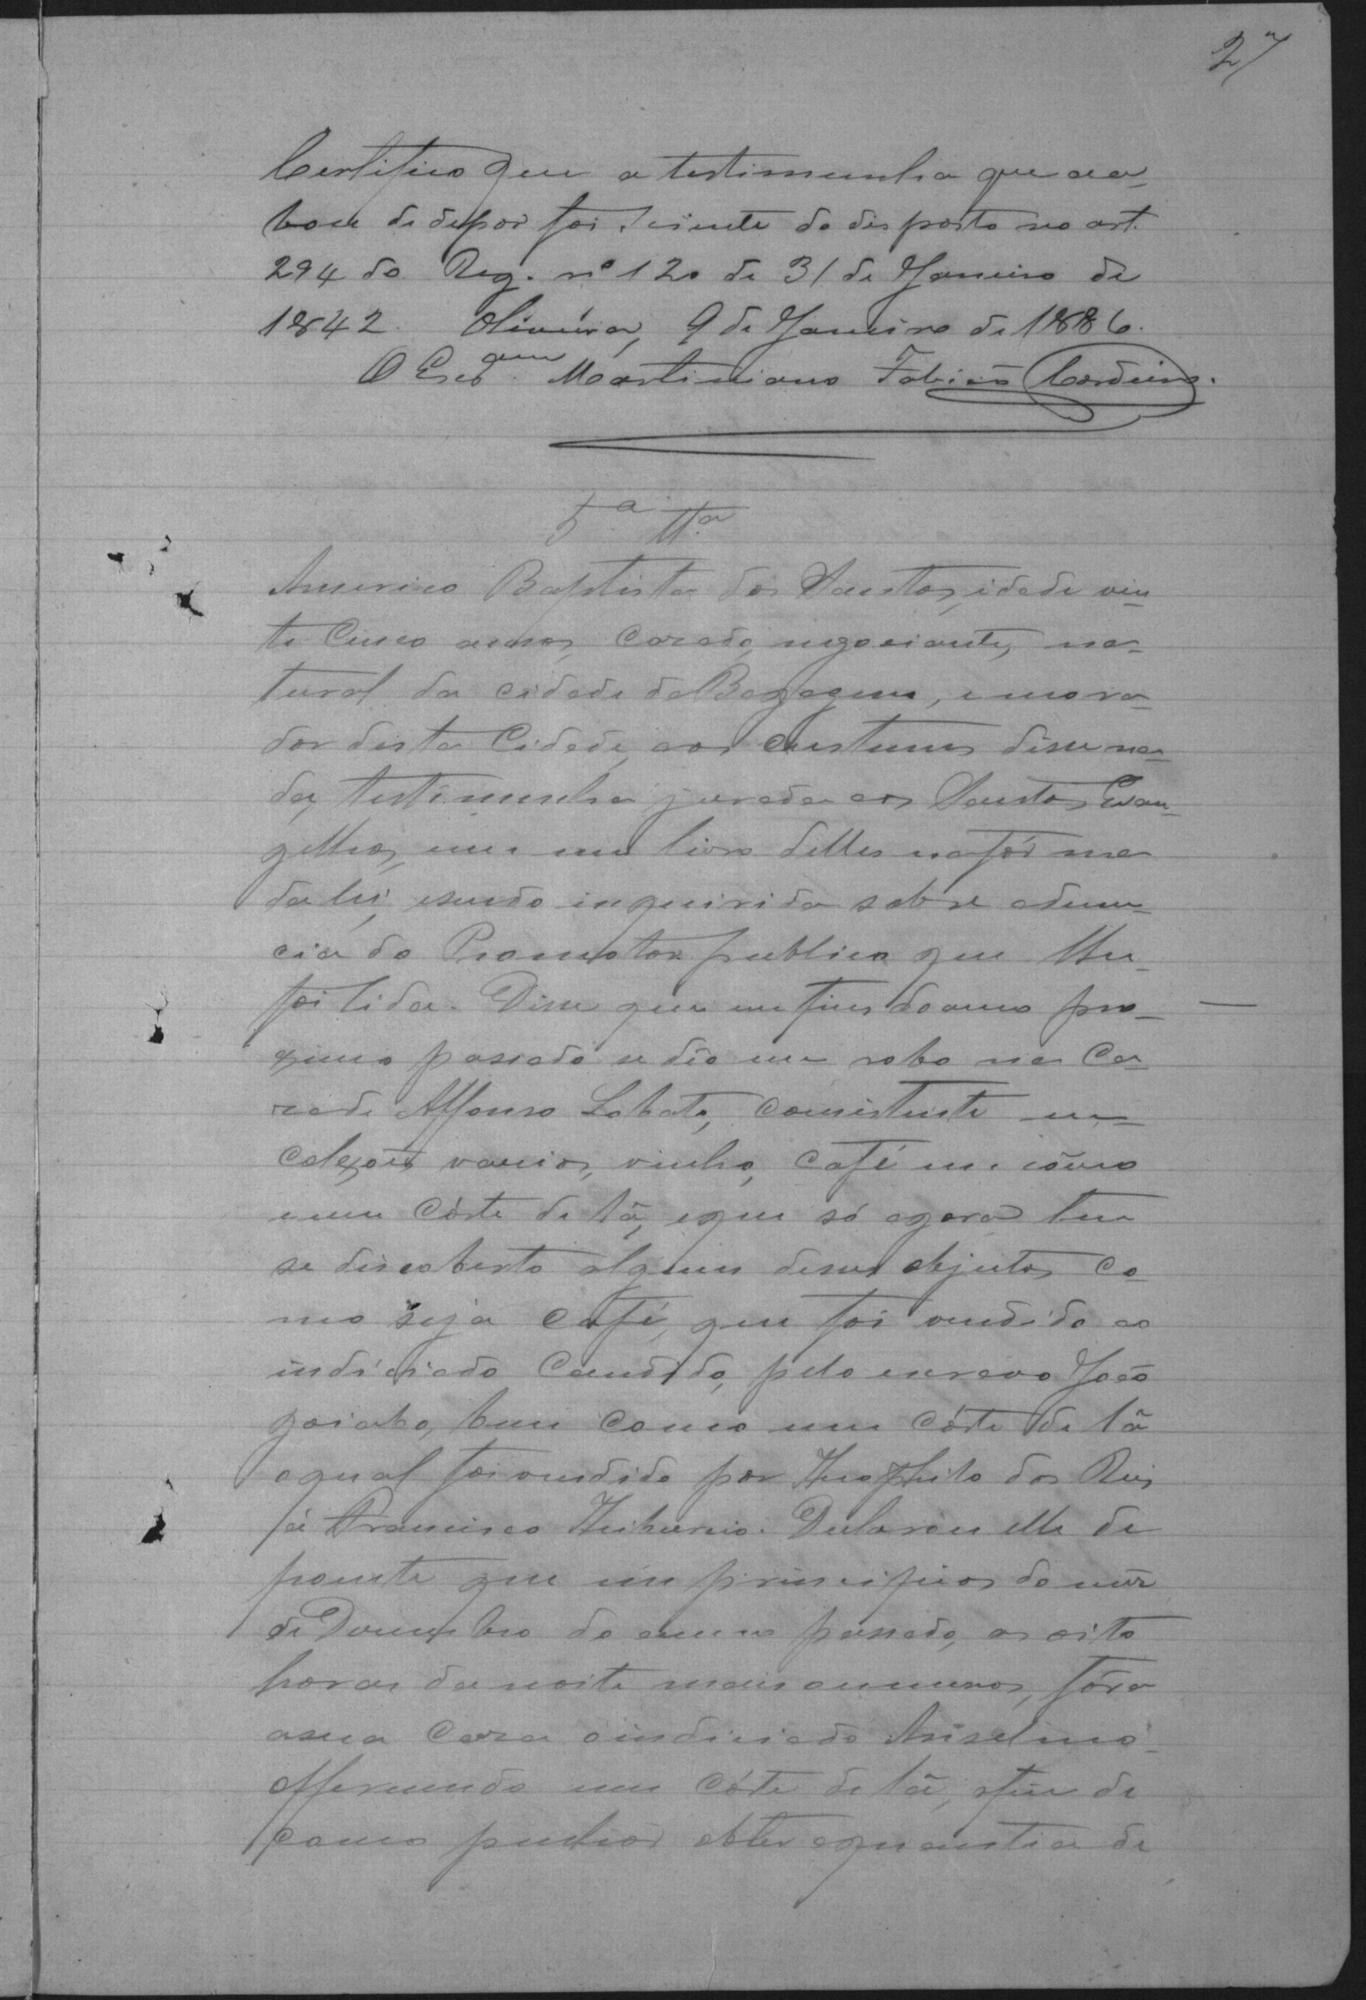 27
Certifico que a testimunha que aca-
bou de depor foi sciente do disposto no art.
294 do Reg. nº 120 de 31 de Janeiro de
1842. Oliveira, 9 de Janeiro de 1886.
O Escam Martiniano Fabião Cordeiro.
5ª Ttª
Americo Baptista dos Santos, idade vin-
te cinco annos, cazado, negociante, na-
tural da cidade da Bagagem, e mora-
dor desta Cidade, aos custumes disse na-
da, testimunha jurada aos Santos Evan-
gelhos, em um livro delles na fórma
da lei, e sendo inquirida sobre a denun-
cia do Promotor publico que lhe
foi lida. Disse que em fins do anno pro-
ximo passado se dêo um robo na Ca-
za de Affonso Lobato, consistente em
calções varios, vinho, café em
e um córte de lã, e que só agora tem
se discoberto alguns desses objectos co-
mo seja café, que foi vendido ao
indiciado Candido, pelo escravo João
goiaba, bem como um córte de lã
o qual foi vendido por Theophilo dos Reis
á Francisco Declarou elle de
poente que em principios do mêz
de Dezembro do anno passado, as oito
horas da noite mais ou menos, fôra
a sua caza o indiciado Anselmo
offerecendo um córte de lã, afim de
como penhor obter a quantia de